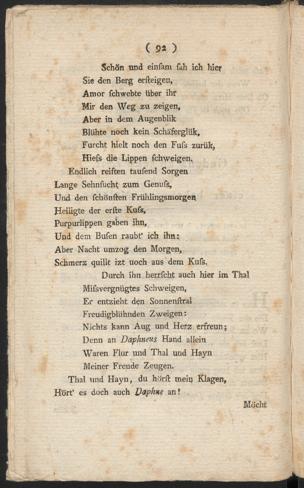 ( 92 )
Schön und einſam ſah ich hier
Sie den Berg erſteigen,
Amor ſchwebte über ihr
Mir den Weg zu zeigen,
Aber in dem Augenblik
Blühte noch kein Schäferglük,
Furcht hielt noch den Fuſs zurük,
Hieſs die Lippen ſchweigen.
Endlich reiften tauſend Sorgen
Lange Sehnſucht zum Genuſs,
Und den ſchönſten Frühlingsmorgen
Heiligte der erſte Kuſs,
Purpurlippen gaben ihn,
Und dem Buſen raubt' ich ihn:
Aber Nacht umzog den Morgen,
Schmerz quillt izt noch aus dem Kuſs.
Durch ihn herrſcht auch hier im Thal
Miſsvergnügtes Schweigen,
Er entzieht den Sonnenſtral
Freudigblühnden Zweigen:
Nichts kann Aug und Herz erfreun;
Denn an Daphneus Hand allein
Waren Flur und Thal und Hayn
Meiner Freude Zeugen.
Thal und Hayn, du hörſt mein Klagen,
Hört' es doch auch Daphne an!
Möcht